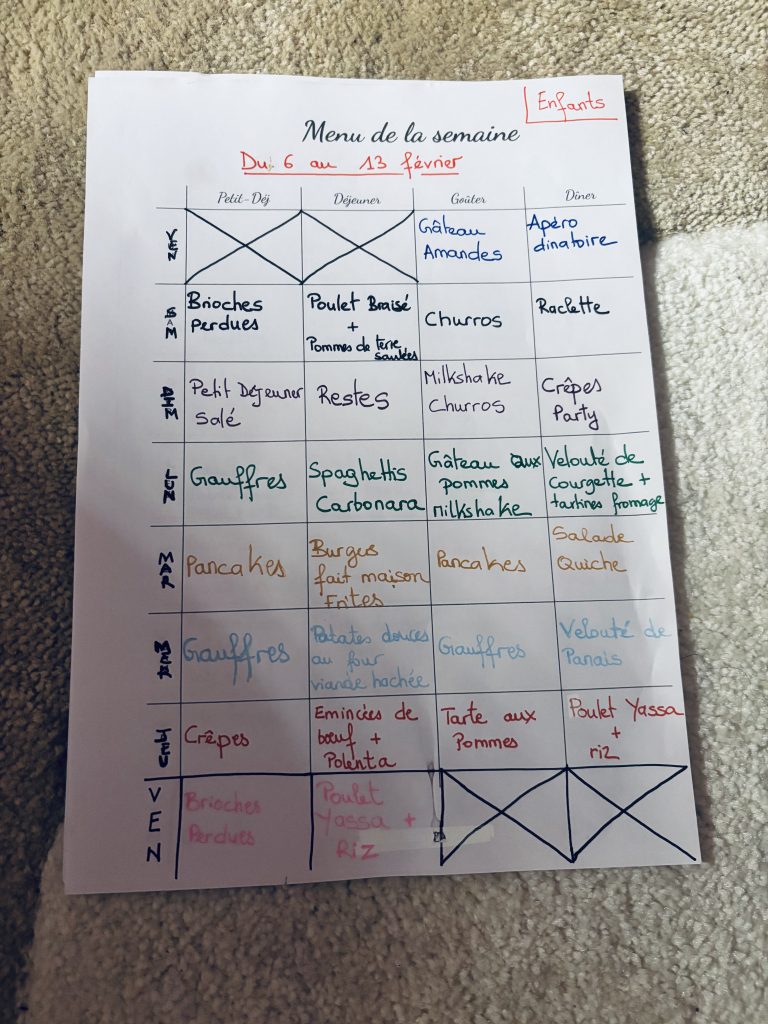 Enfants
Menu de la semaine
Du 6 au 13 février
Petit-Déj Déjeuner Goûter Dîner
VEN
Gâteau
Amandes
Apéro
dinatoire
SAM
Brioches
perdues
Poulet Braisé
+
Pommes de terre
sautées
Churros
Raclette
DIM
Petit Déjeuner
Salé
Restes
Milkshake
Churros
Crêpes
Party
LUN
Gauffres
Spaghettis
Carbonara
Gâteau aux
pommes
milkshake
Velouté de
Courgette +
tartines fromage
MAR
Pancakes
Burgers
fait maison
Frites
Pancakes
Salade
Quiche
Gauffres
Patates douces
au four
viande hachée
Gauffres
Velouté de
Panais
Crêpes
Emincées de
bœuf +
Polenta
Tarte aux
Pommes
Poulet Yassa
+
riz
VEN
Brioches
Perdues
Poulet
Yassa +
Riz